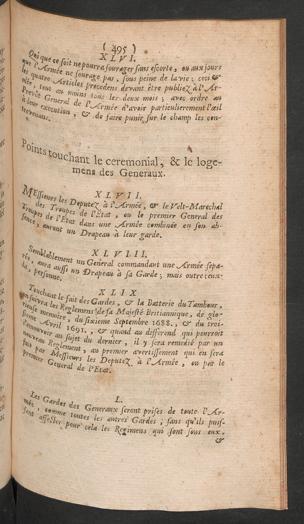 ( 495 )
XLVI.
Qui que ce soit ne pourra fourager sans escorte, ou aux jours
que l'Armée ne fourage pas, sous peine de la vie; ces &
les quatre Articles precedens devant être publiez à l'Ar-
mée, tout au moins tous les deux mois; avec ordre au
Prevôt General de l'Armée d'avoir particulierement l'œil
à leur execution, & de faire punir sur le champ les con-
trevenans.
Points touchant le ceremonial, & le loge-
mens des Generaux.
XLVII.
MEssieurs les Deputez à l'Armée, & le Velt-Marechal
des Troupes de l'Etat, ou le premier General des
Troupes de l'Etat dans une Armée combinée en son ab-
sence, auront un Drapeau à leur garde.
XLVIII.
Semblablement un General commandant une Armée sepa-
rée, aura aussi un Drapeau à sa Garde; mais outre ceux-
là, personne.
XLIX
Touchant le fait des Gardes, & la Batterie du Tambour,
on suivra les Reglemens de sa Majesté Britannique, de glo-
rieuse memoire, du sixieme Septembre 1688. & du troi-
sieme Avril 1691. & quand au differend qui pourroit
s'émouvoir au sujet du dernier, il y sera remedié par un
nouveau Reglement, au premier avertissement qui en sera
fait par Messieurs les Deputez à l'Armée, ou par le
premier General de l'Etat.
L.
Les Gardes des Generaux seront prises de toute l'Ar-
mée, comme toutes les autres Gardes; sans qu'ils puis-
sent affecter pour cela les Regimens qui sont sous eux.
&